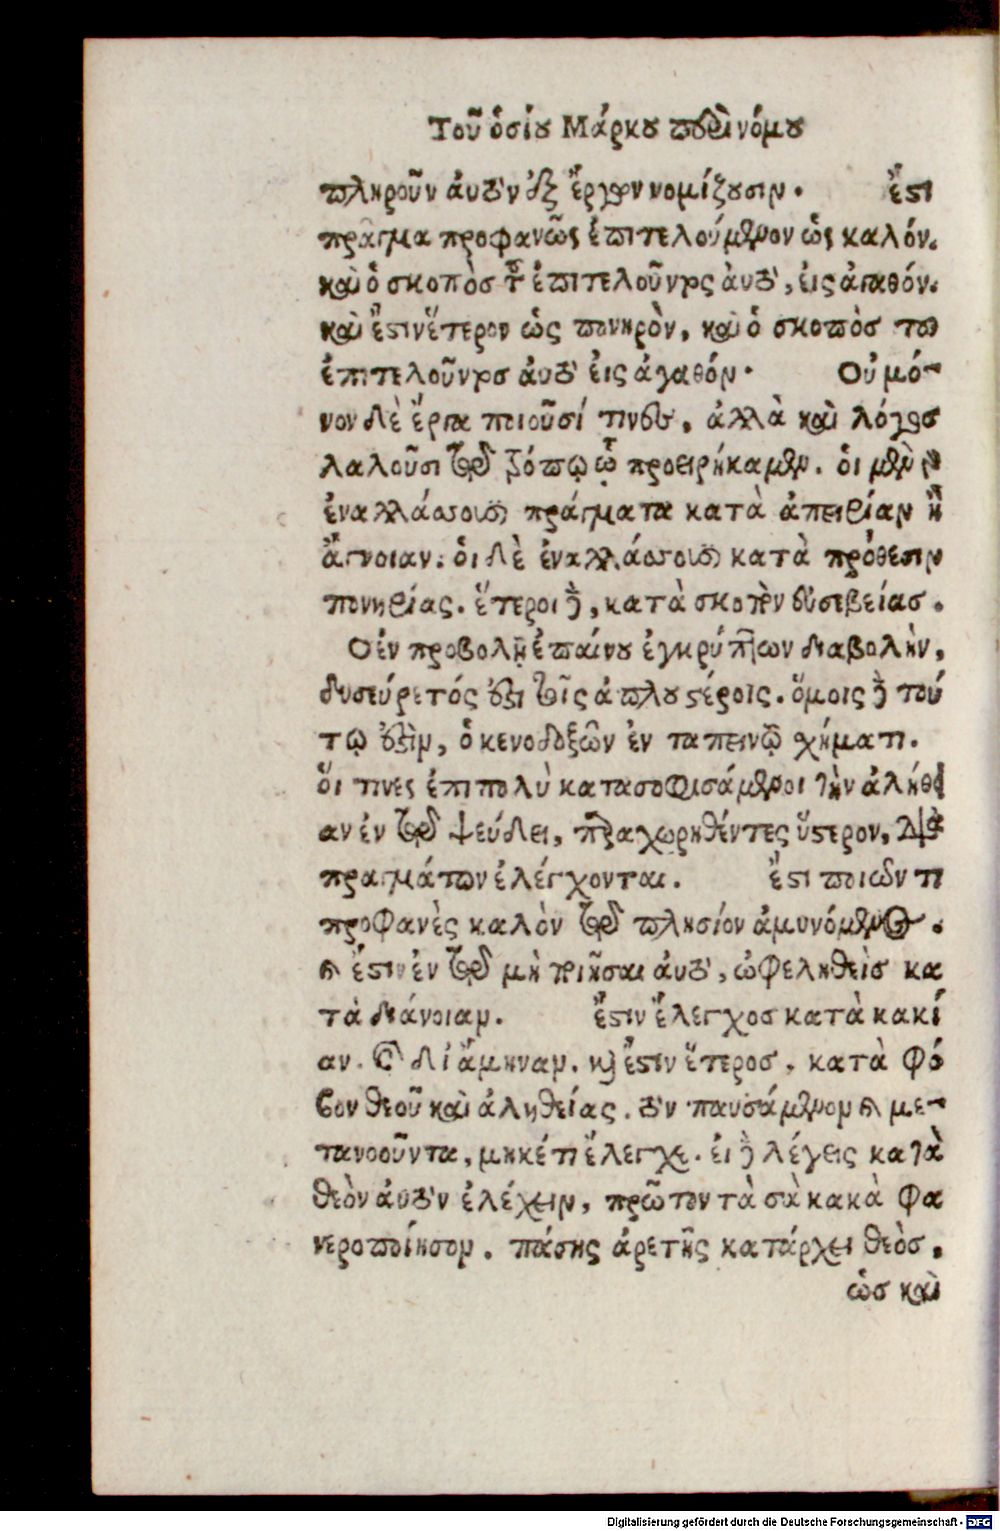 Τοῦ ὁσίου Μάρκου περὶ νόμου
πληροῦν αὐτὸν ἐξ ἔργων νομίζουσιν. ἔστι
πρᾶγμα προφανῶς ἐπιτελούμενον ὡς καλόν.
καὶ ὁ σκοπὸσ τοῦ ἐπιτελοῦντος ἀυτοῦ, ἐις ἀγαθόν.
καὶ ἔστιν ἕτερον ὡς πονηρὸν, καὶ ὁ σκοπὸσ τοῦ
ἐπιτελοῦντοσ ἀυτοῦ ἐις ἀγαθόν. Οὐ μό-
νον δὲ ἔργα ποιοῦσί τινες, ἀλλὰ καὶ λόγουσ
λαλοῦσι τῷ τρόπῳ ᾧ προειρήκαμεν. ὁι μὲν γὸ
ἐναλλάσσουσι πράγματα κατὰ ἀπειρίαν ἢ
ἄγνοιαν. ὁι δὲ ἐναλλάσσουσι κατὰ πρόθεσιν
πονηρίας. ἕτεροι δὲ, κατὰ σκοπὸν ἐυσεβείασ.
Ὁ ἐν προβολῇ ἐπαίνου ἐγκρύπτων διαβολὴν,
δυσεύρετός ἐστι τοῖς ἁπλουστέροις. ὅμοιος δὲ τού
τῳ ἐστὶν, ὁ κενοδοξῶν ἐν ταπεινῷ σχήματι.
ὅι τινες ἐπιπολὺ κατασοφισάμενοι τὴν ἀλήθει
αν ἐν τῷ ψεύδει, παραχωρηθέντες ὕστερον, διὰ
πραγμάτων ἐλέγχονται. ἔστι ποιῶν τι
προφανὲς καλὸν τῷ πλησίον ἀμυνόμενος.
καὶ ἔστιν ἐν τῷ μὴ ποιῆσαι ἀυτοῦ, ὠφεληθεὶσ κα
τὰ διάνοιαν. ἔστιν ἔλεγχοσ κατὰ κακί
αν. καὶ δι ἄμυναν. καὶ ἔστιν ἕτεροσ. κατὰ φό
βον θεοῦ καὶ ἀληθείας. τὸν παυσάμενον καὶ με-
τανοοῦντα, μηκέτι ἔλεγχε. ἐι δὲ λέγεις κατὰ
θεὸν ἀυτὸν ἐλέχειν, πρῶτον τὰ σὰ κακὰ φα
νεροποίησον. πάσης ἀρετῆς κατάρχει θεὸσ,
ὡσ καὶ
Digitalisierung gefördert durch die Deutsche Forschungsgemeinschaft - DFG